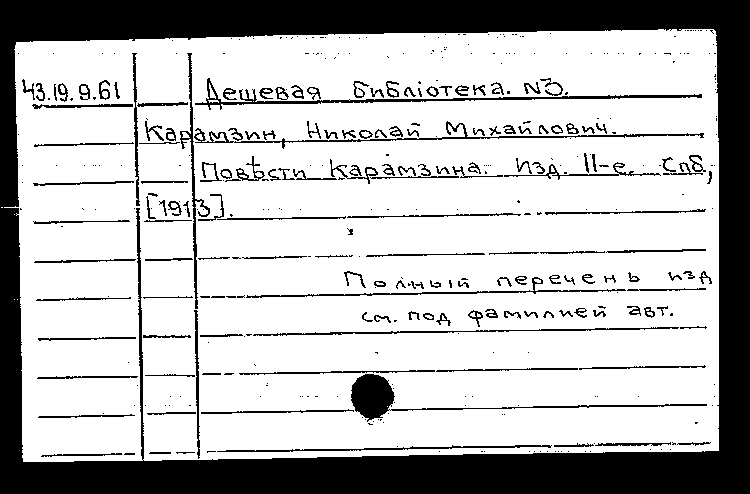 43.19.9.61 Дешевая библiотека. N3.
Карамзин, Николай Михайлович.
Повѣсти Карамзина. Изд. 11-е. Спб,
[1913].
Полный перечень изд
см. под фамилией авт.